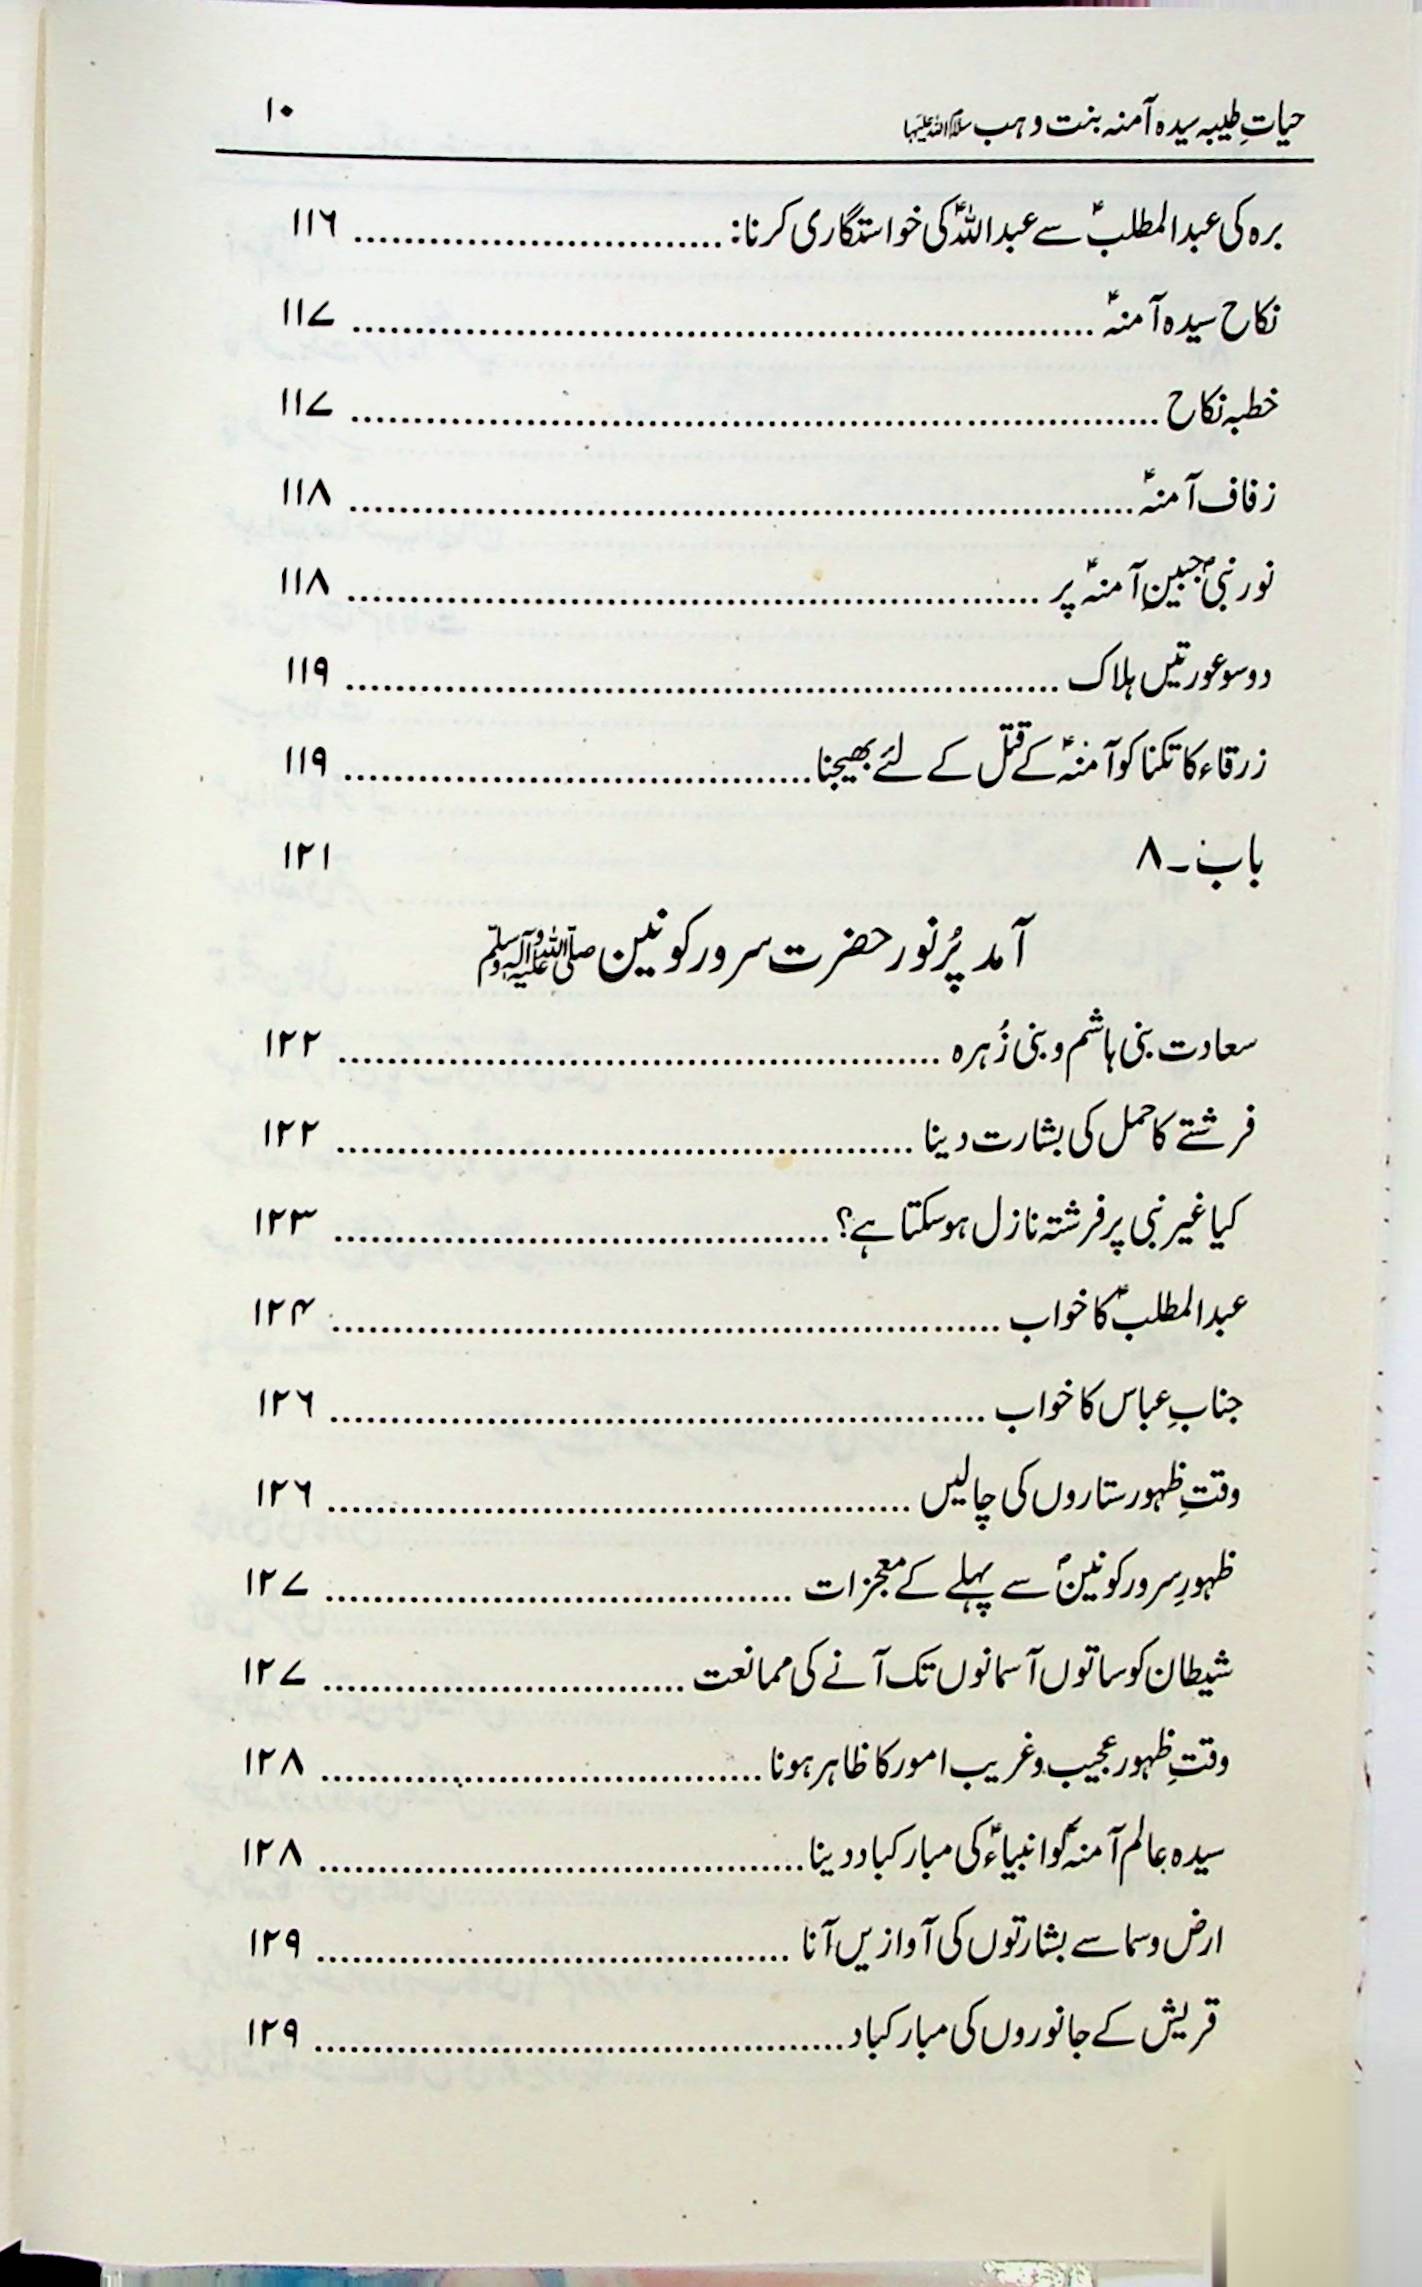 حیاتِ طیبہ سیدہ آمنہ بنت وہب سلام اللہ علیہا ۱۰
برہ کی عبدالمطلبؑ سے عبداللہؑ کی خواستگاری کرنا: ۱۱۶
نکاح سیدہ آمنہؑ ۱۱۷
خطبہ نکاح ۱۱۷
زفاف آمنہؑ ۱۱۸
نور نبیؐ جبینِ آمنہؑ پر ۱۱۸
دوسو عورتیں ہلاک ۱۱۹
زرقاء کا تکنا کو آمنہؑ کے قتل کے لئے بھیجنا ۱۱۹
باب ۔ ۸ ۱۲۱
آمد پُرنور حضرت سرور کونین صلی اللہ علیہ وآلہ وسلم
سعادت بنی ہاشم و بنی زُہرہ ۱۲۲
فرشتے کا حمل کی بشارت دینا ۱۲۲
کیا غیر نبی پر فرشتہ نازل ہوسکتا ہے؟ ۱۲۳
عبدالمطلبؑ کا خواب ۱۲۴
جنابِ عباس کا خواب ۱۲۶
وقتِ ظہور ستاروں کی چالیں ۱۲۶
ظہورِ سرور کونینؐ سے پہلے کے معجزات ۱۲۷
شیطان کو ساتوں آسمانوں تک آنے کی ممانعت ۱۲۷
وقتِ ظہور عجیب و غریب امور کا ظاہر ہونا ۱۲۸
سیدہ عالم آمنہؑ کو انبیاءؑ کی مبارکباد دینا ۱۲۸
ارض و سما سے بشارتوں کی آوازیں آنا ۱۲۹
قریش کے جانوروں کی مبارکباد ۱۲۹